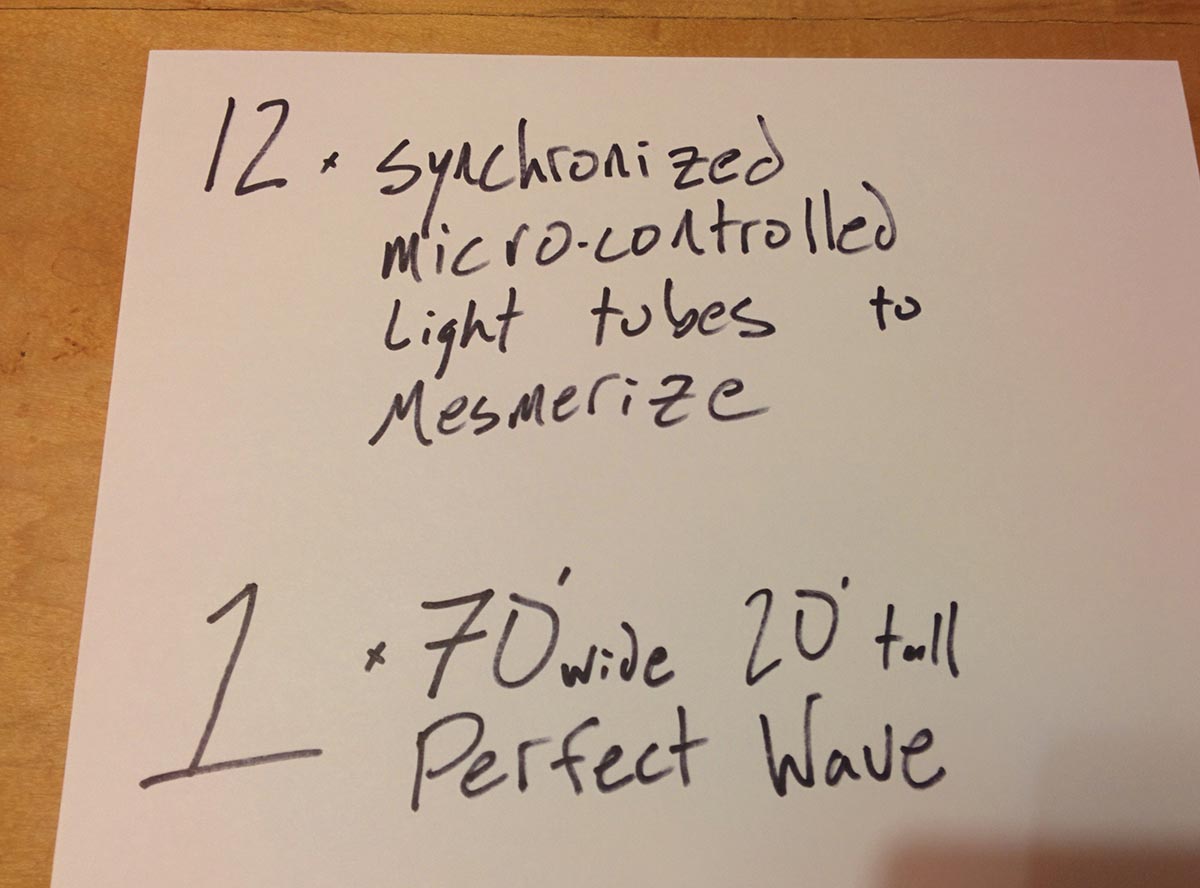 12 x synchronized
micro-controlled
Light tubes to
Mesmerize
1 x 70' wide 20' tall
Perfect Wave